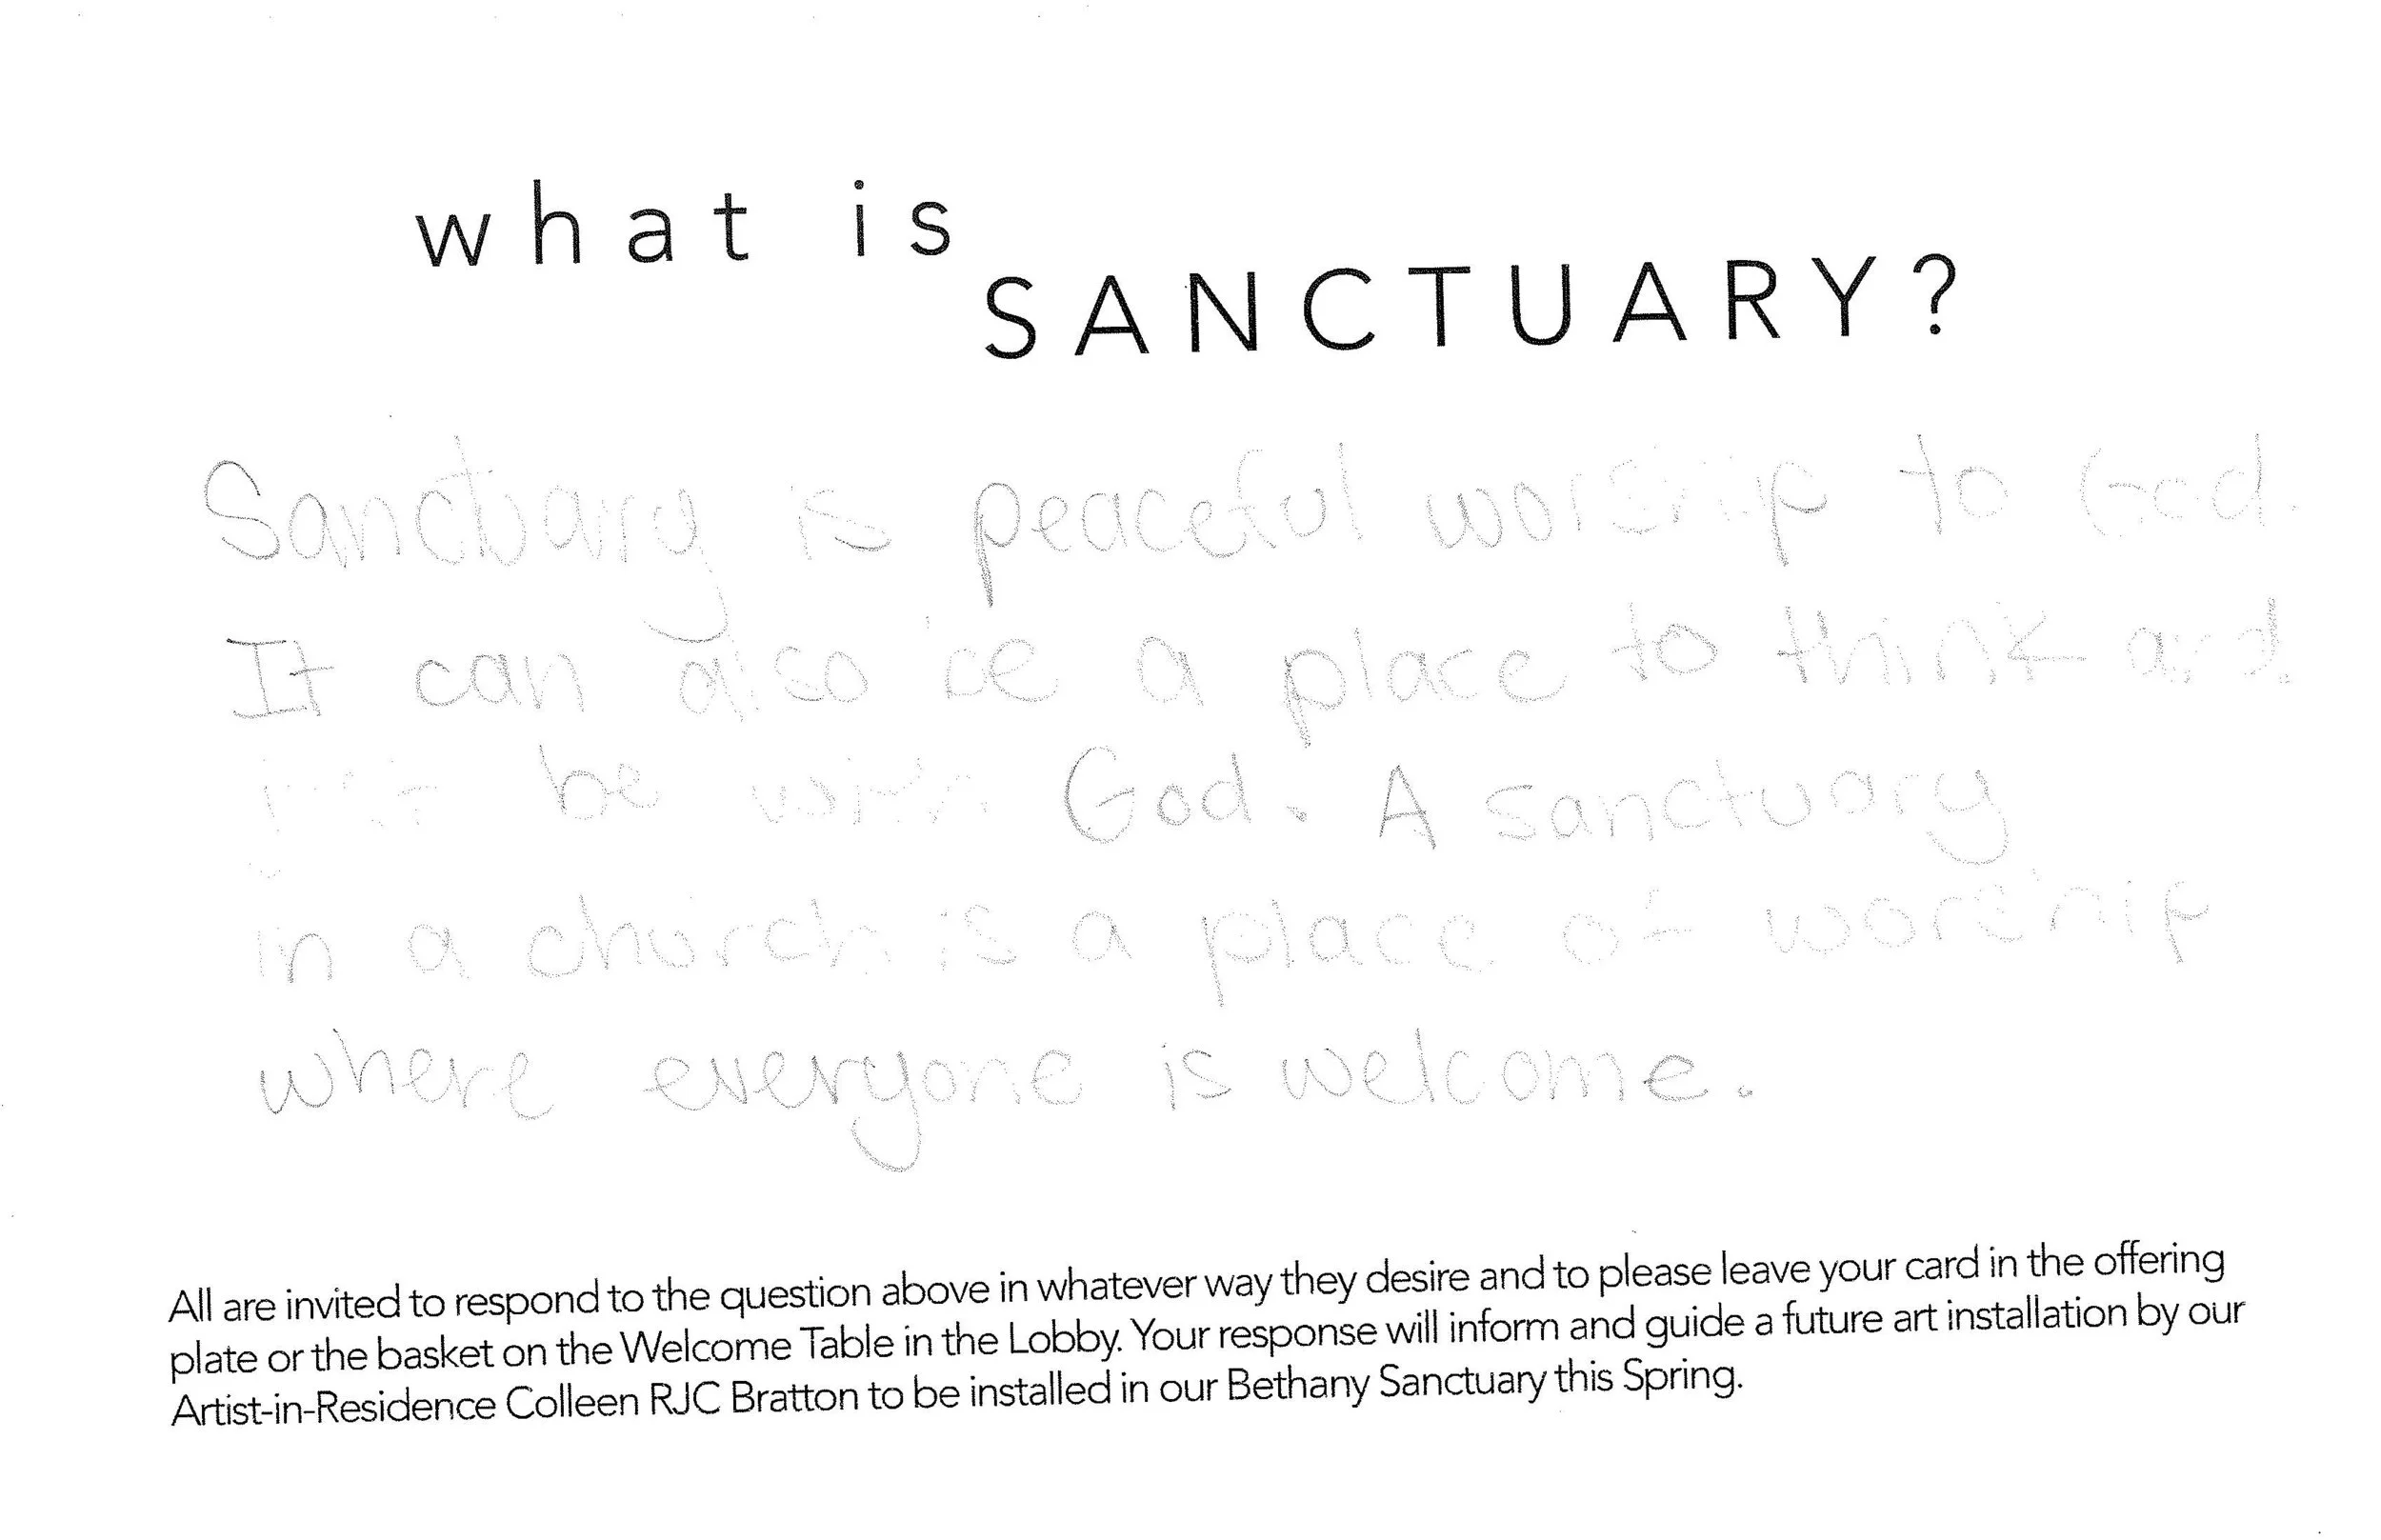 what is
SANCTUARY?
Sanctuary is peaceful worship to God.
It can also be a place to think and
just be with God. A sanctuary
in a church is a place of worship
where everyone is welcome.
All are invited to respond to the question above in whatever way they desire and to please leave your card in the offering
plate or the basket on the Welcome Table in the Lobby. Your response will inform and guide a future art installation by our
Artist-in-Residence Colleen RJC Bratton to be installed in our Bethany Sanctuary this Spring.